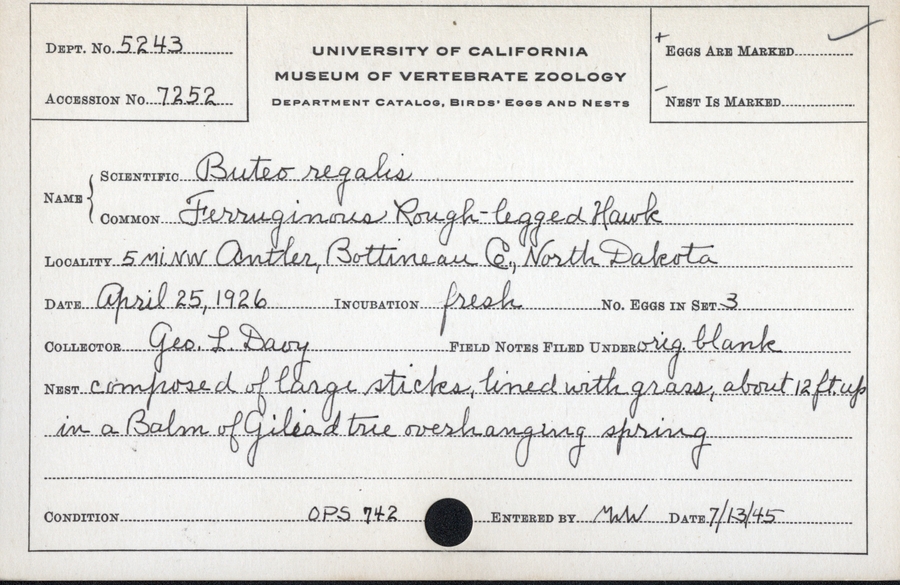 Dept. No. 5243
Accession No. 7252
UNIVERSITY OF CALIFORNIA
MUSEUM OF VERTEBRATE ZOOLOGY
Department Catalog, Birds' Eggs and Nests
+ Eggs Are Marked ✓
- Nest Is Marked
Name { Scientific Buteo regalis
Common Ferruginous Rough-legged Hawk
Locality 5 mi NW Antler, Bottineau Co., North Dakota
Date April 25, 1926 Incubation fresh No. Eggs in Set 3
Collector Geo. L. Davy Field Notes Filed Under orig. blank
Nest composed of large sticks, lined with grass, about 12 ft. up
in a Balm of Gilead tree overhanging spring
Condition OPS 742 Entered by MW Date 7/13/45